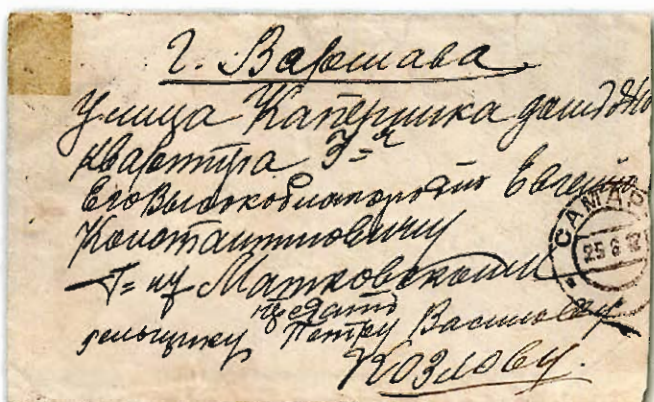 г. Варшава
Улица Каперника дом
квартира 3=я
Его Высокоблагородию Евгению
Константиновичу
Г=ну Матковскому
передать
Петру Василову
Козлову.
САМАР
25 6 12